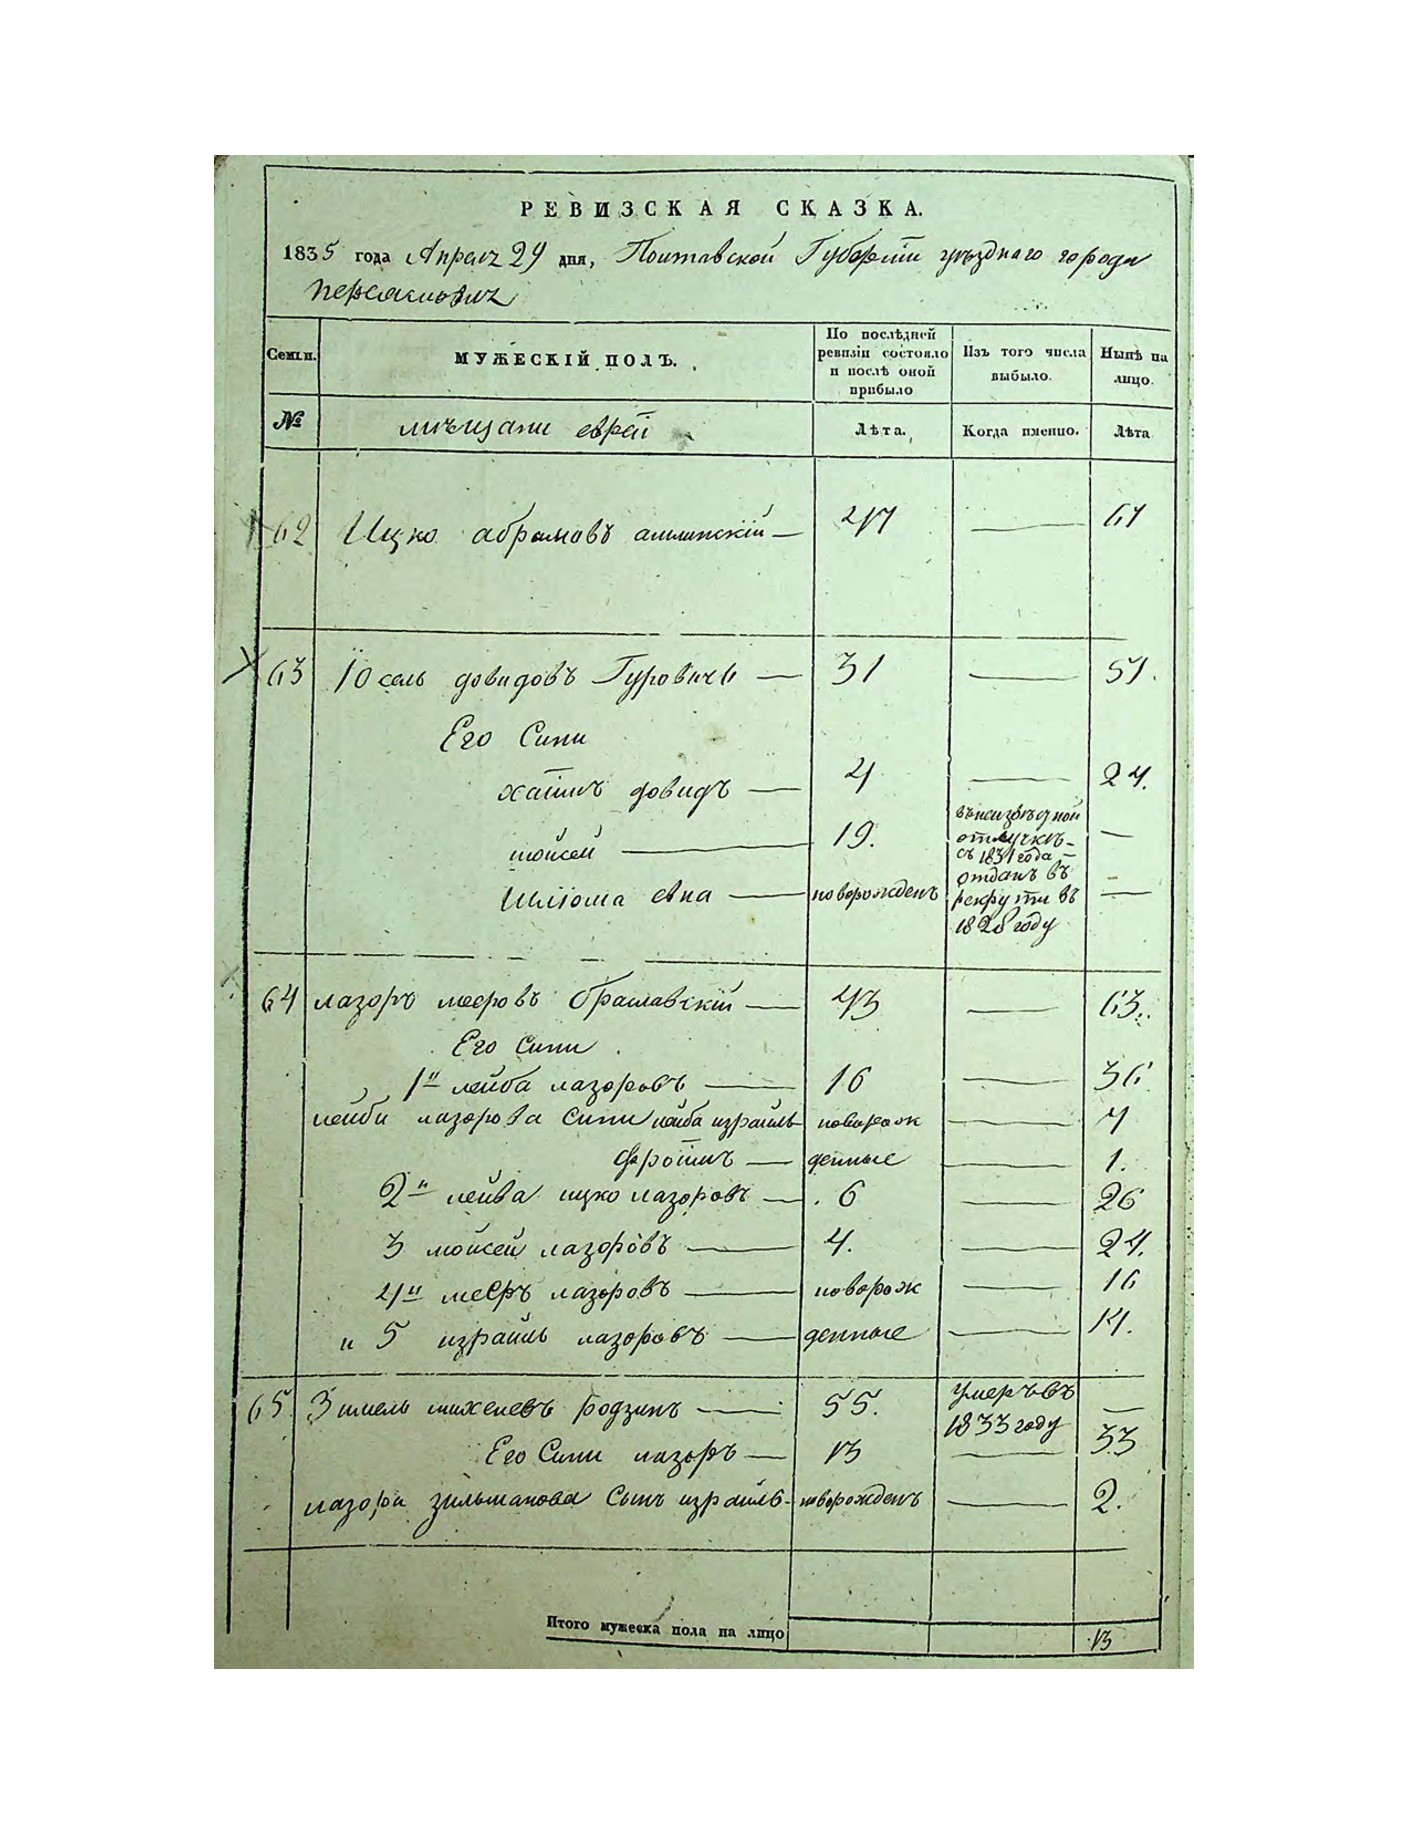 РЕВИЗСКАЯ СКАЗКА.
1835 года Апреля 29 дня, Полтавской Губернии уѣзднаго города
Переяславля
Семьи. МУЖЕСКІЙ ПОЛЪ. По послѣдней ревизіи состояло и послѣ оной прибыло Изъ того числа выбыло. Нынѣ на лицо.
№ мѣщани евреи Лѣта. Когда именно. Лѣта
62 Ицко абрамовъ — 47 — 67
63 Іосель довидовъ Гуровичъ — 31 — 51.
Его Сини
хаимъ довидъ — 4 — 24.
мойсей — 19. въ неизвѣстной отлучкѣ съ 1831 года —
Шліома — новорожденъ отданъ въ рекрути въ 1828 году —
64 лазоръ мееровъ браславскій — 43 — 63.
Его Сини.
1й лейба лазоровъ — 16 — 36
лейби лазорова Сини лейба израиль новорож — 7
фроимъ — денные — 1.
2й лейва ицко лазоровъ — 6 — 26
3 мойсей лазоровъ — 4. — 24.
4й мееръ лазоровъ — новорож — 16
и 5 израиль лазоровъ — денные — 14.
65 Зимель михелевъ родзинъ — 55. умеръ въ 1833 году —
Его Сини лазоръ — 13 — 33
лазора зильманова Сынъ израиль - новорожденъ — 2.
Итого мужеска пола на лицо 13